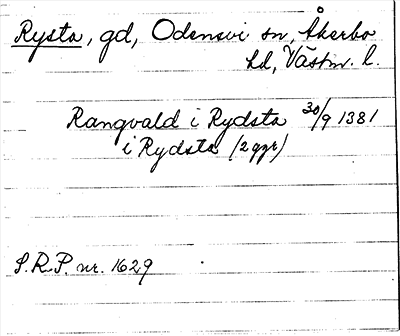 Rysta, gd, Odensvi sn, Åkerbo
hd, Västm. l.
Rangvald i Rydsta 30/9 1381
i Rydsta (2 ggr)
S.R.P. nr. 1629